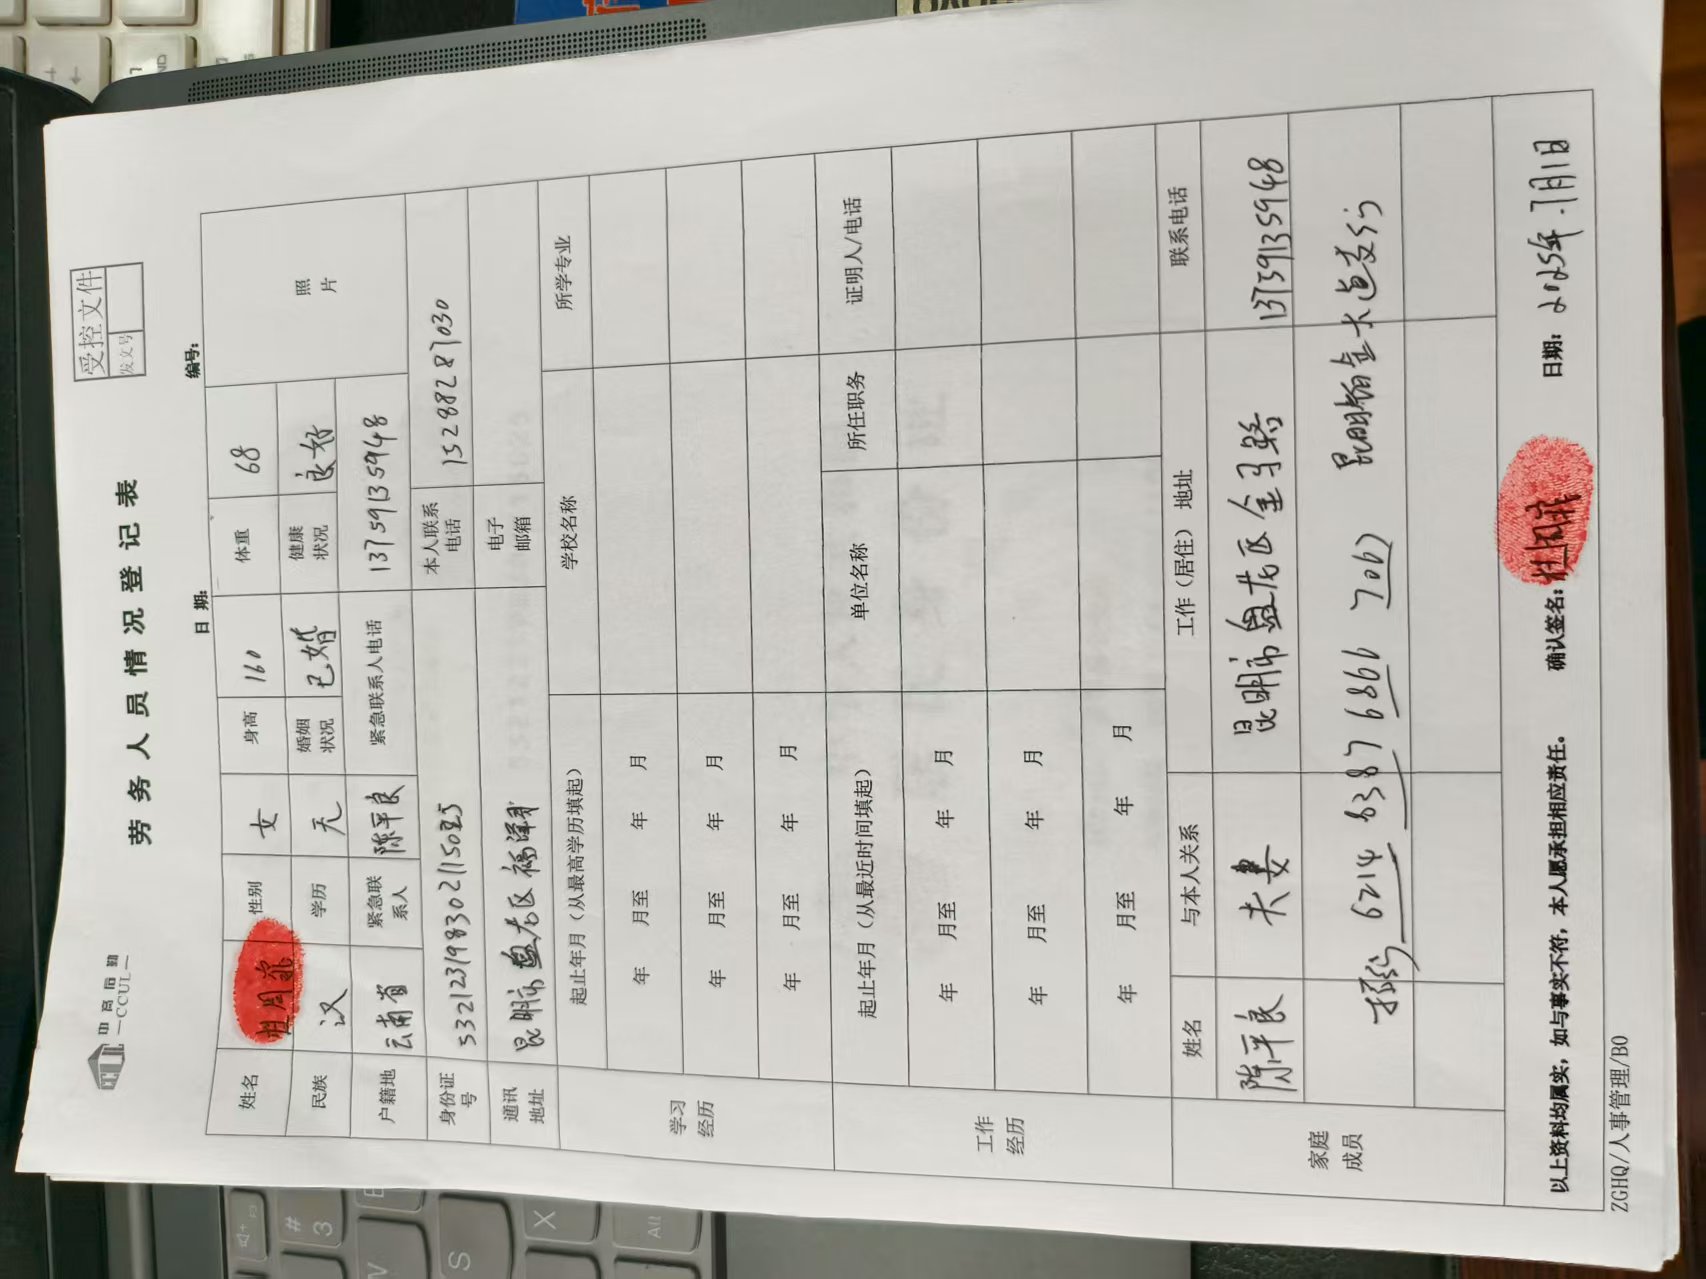 中高后勤
—CCUL—
受控文件
发文号
劳务人员情况登记表
日期: 编号:
姓名 性别 女 身高 160 体重 68 照片
民族 汉 学历 无 婚姻状况 已婚 健康状况 良好
户籍地 云南省 紧急联系人 陈平良 紧急联系人电话 13759135948
身份证号 本人联系电话 15288287030
通讯地址 昆明市盘龙区 电子邮箱
学习经历 起止年月（从最高学历填起） 学校名称 所学专业
年 月至 年 月
年 月至 年 月
年 月至 年 月
工作经历 起止年月（从最近时间填起） 单位名称 所任职务 证明人/电话
年 月至 年 月
年 月至 年 月
年 月至 年 月
家庭成员 姓名 与本人关系 工作（居住）地址 联系电话
陈平良 夫妻 昆明市盘龙区金 13759135948
6214 8387 6866 7067 昆明 支行
以上资料均属实，如与事实不符，本人愿承担相应责任。 确认签名: 日期: 2025年.7月1日
ZGHQ/人事管理/B0